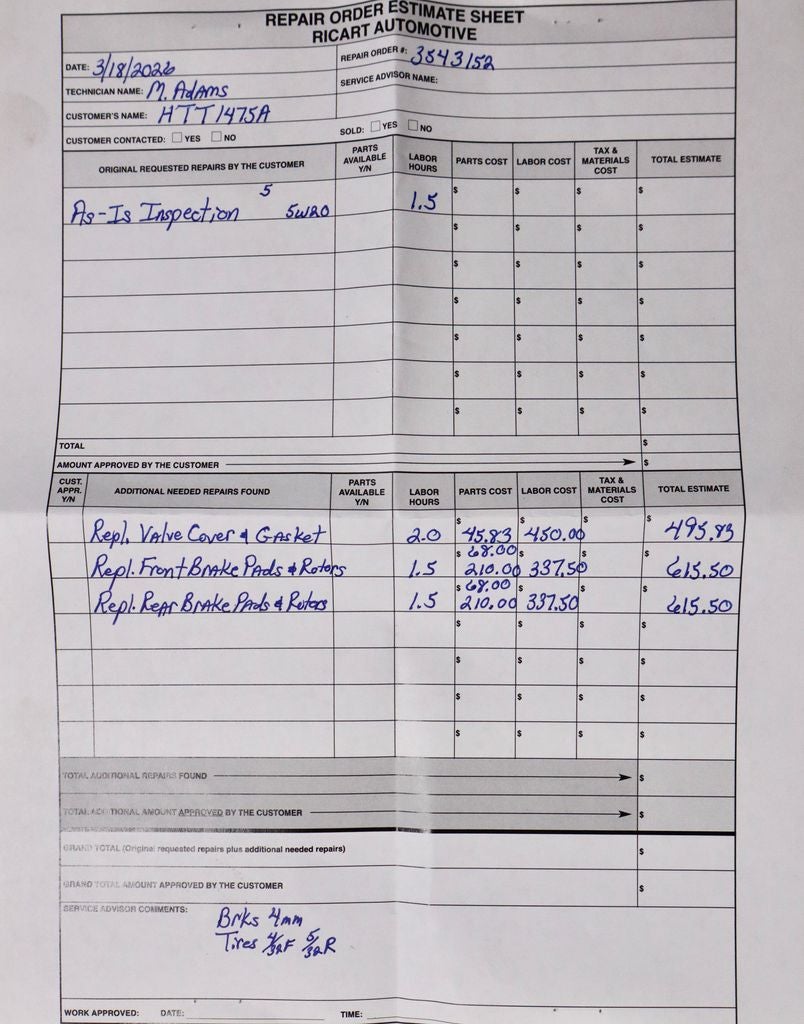 REPAIR ORDER ESTIMATE SHEET
RICART AUTOMOTIVE
DATE: 3/18/2026
REPAIR ORDER #: 3543152
TECHNICIAN NAME: M. Adams
SERVICE ADVISOR NAME:
CUSTOMER'S NAME: HTT1475A
CUSTOMER CONTACTED: YES NO
SOLD: YES NO
ORIGINAL REQUESTED REPAIRS BY THE CUSTOMER PARTS AVAILABLE Y/N LABOR HOURS PARTS COST LABOR COST TAX & MATERIALS COST TOTAL ESTIMATE
5
As-Is Inspection 5W20 1.5 $ $ $ $
$ $ $ $
$ $ $ $
$ $ $ $
$ $ $ $
$ $ $ $
$ $ $ $
TOTAL $
AMOUNT APPROVED BY THE CUSTOMER $
CUST. APPR. Y/N ADDITIONAL NEEDED REPAIRS FOUND PARTS AVAILABLE Y/N LABOR HOURS PARTS COST LABOR COST TAX & MATERIALS COST TOTAL ESTIMATE
Repl. Valve Cover & Gasket 2.0 $ 45.83 $ 450.00 $ $ 495.83
$ 68.00 $ $
Repl. Front Brake Pads & Rotors 1.5 210.00 337.50 615.50
$ 68.00 $ $
Repl. Rear Brake Pads & Rotors 1.5 210.00 337.50 615.50
$ $ $ $
$ $ $ $
$ $ $ $
$ $ $ $
TOTAL ADDITIONAL REPAIRS FOUND $
TOTAL ADDITIONAL AMOUNT APPROVED BY THE CUSTOMER $
GRAND TOTAL (Original requested repairs plus additional needed repairs) $
GRAND TOTAL AMOUNT APPROVED BY THE CUSTOMER $
SERVICE ADVISOR COMMENTS: Brks 4mm
Tires 4/32F 5/32R
WORK APPROVED: DATE: TIME: